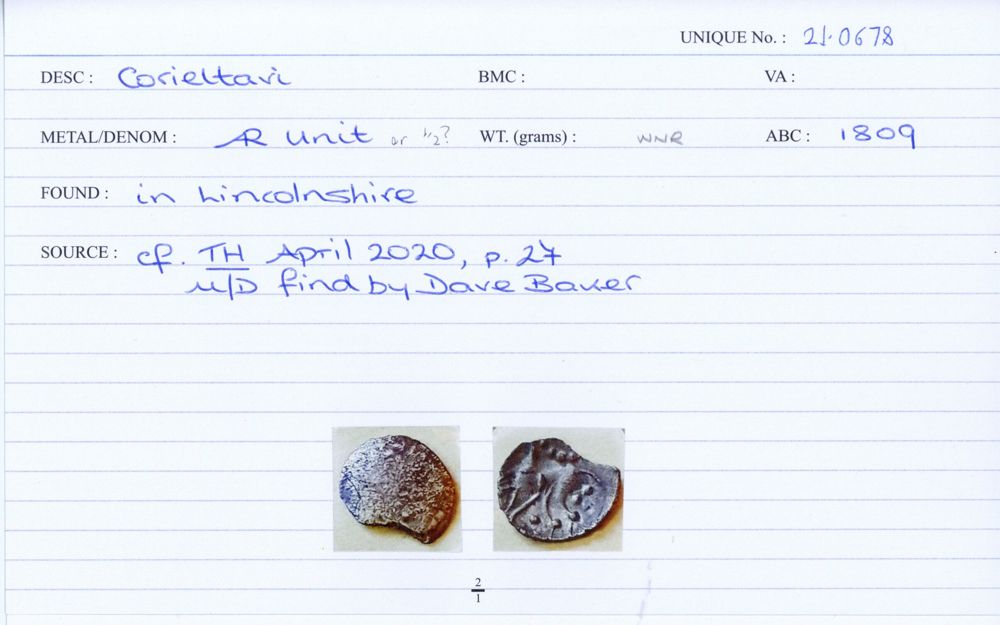 UNIQUE No. : 21.0678
DESC : Corieltavi BMC : VA :
METAL/DENOM : AR unit or 1/2? WT. (grams) : WNR ABC : 1809
FOUND : in Lincolnshire
SOURCE : cf. TH April 2020, p. 27
M/D find by Dave Baker
2
1